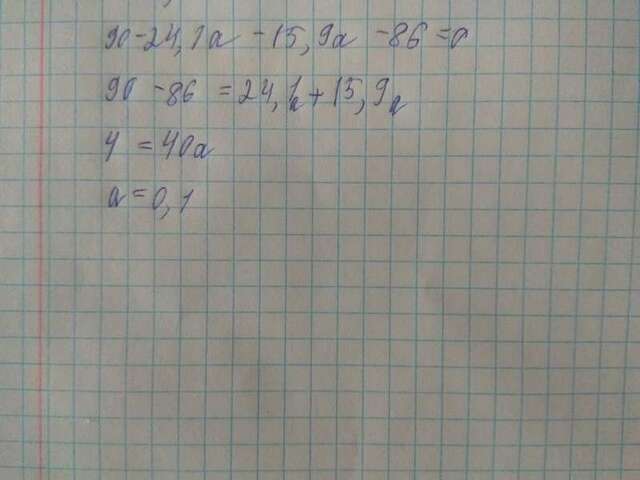 90-24,1a -15,9a -86=0
90 -86 =24,1a+15,9a
4 =40a
a=0,1